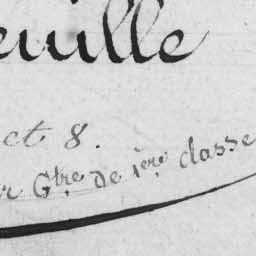 euille
ct 8.
r Gtre de 1ère classe